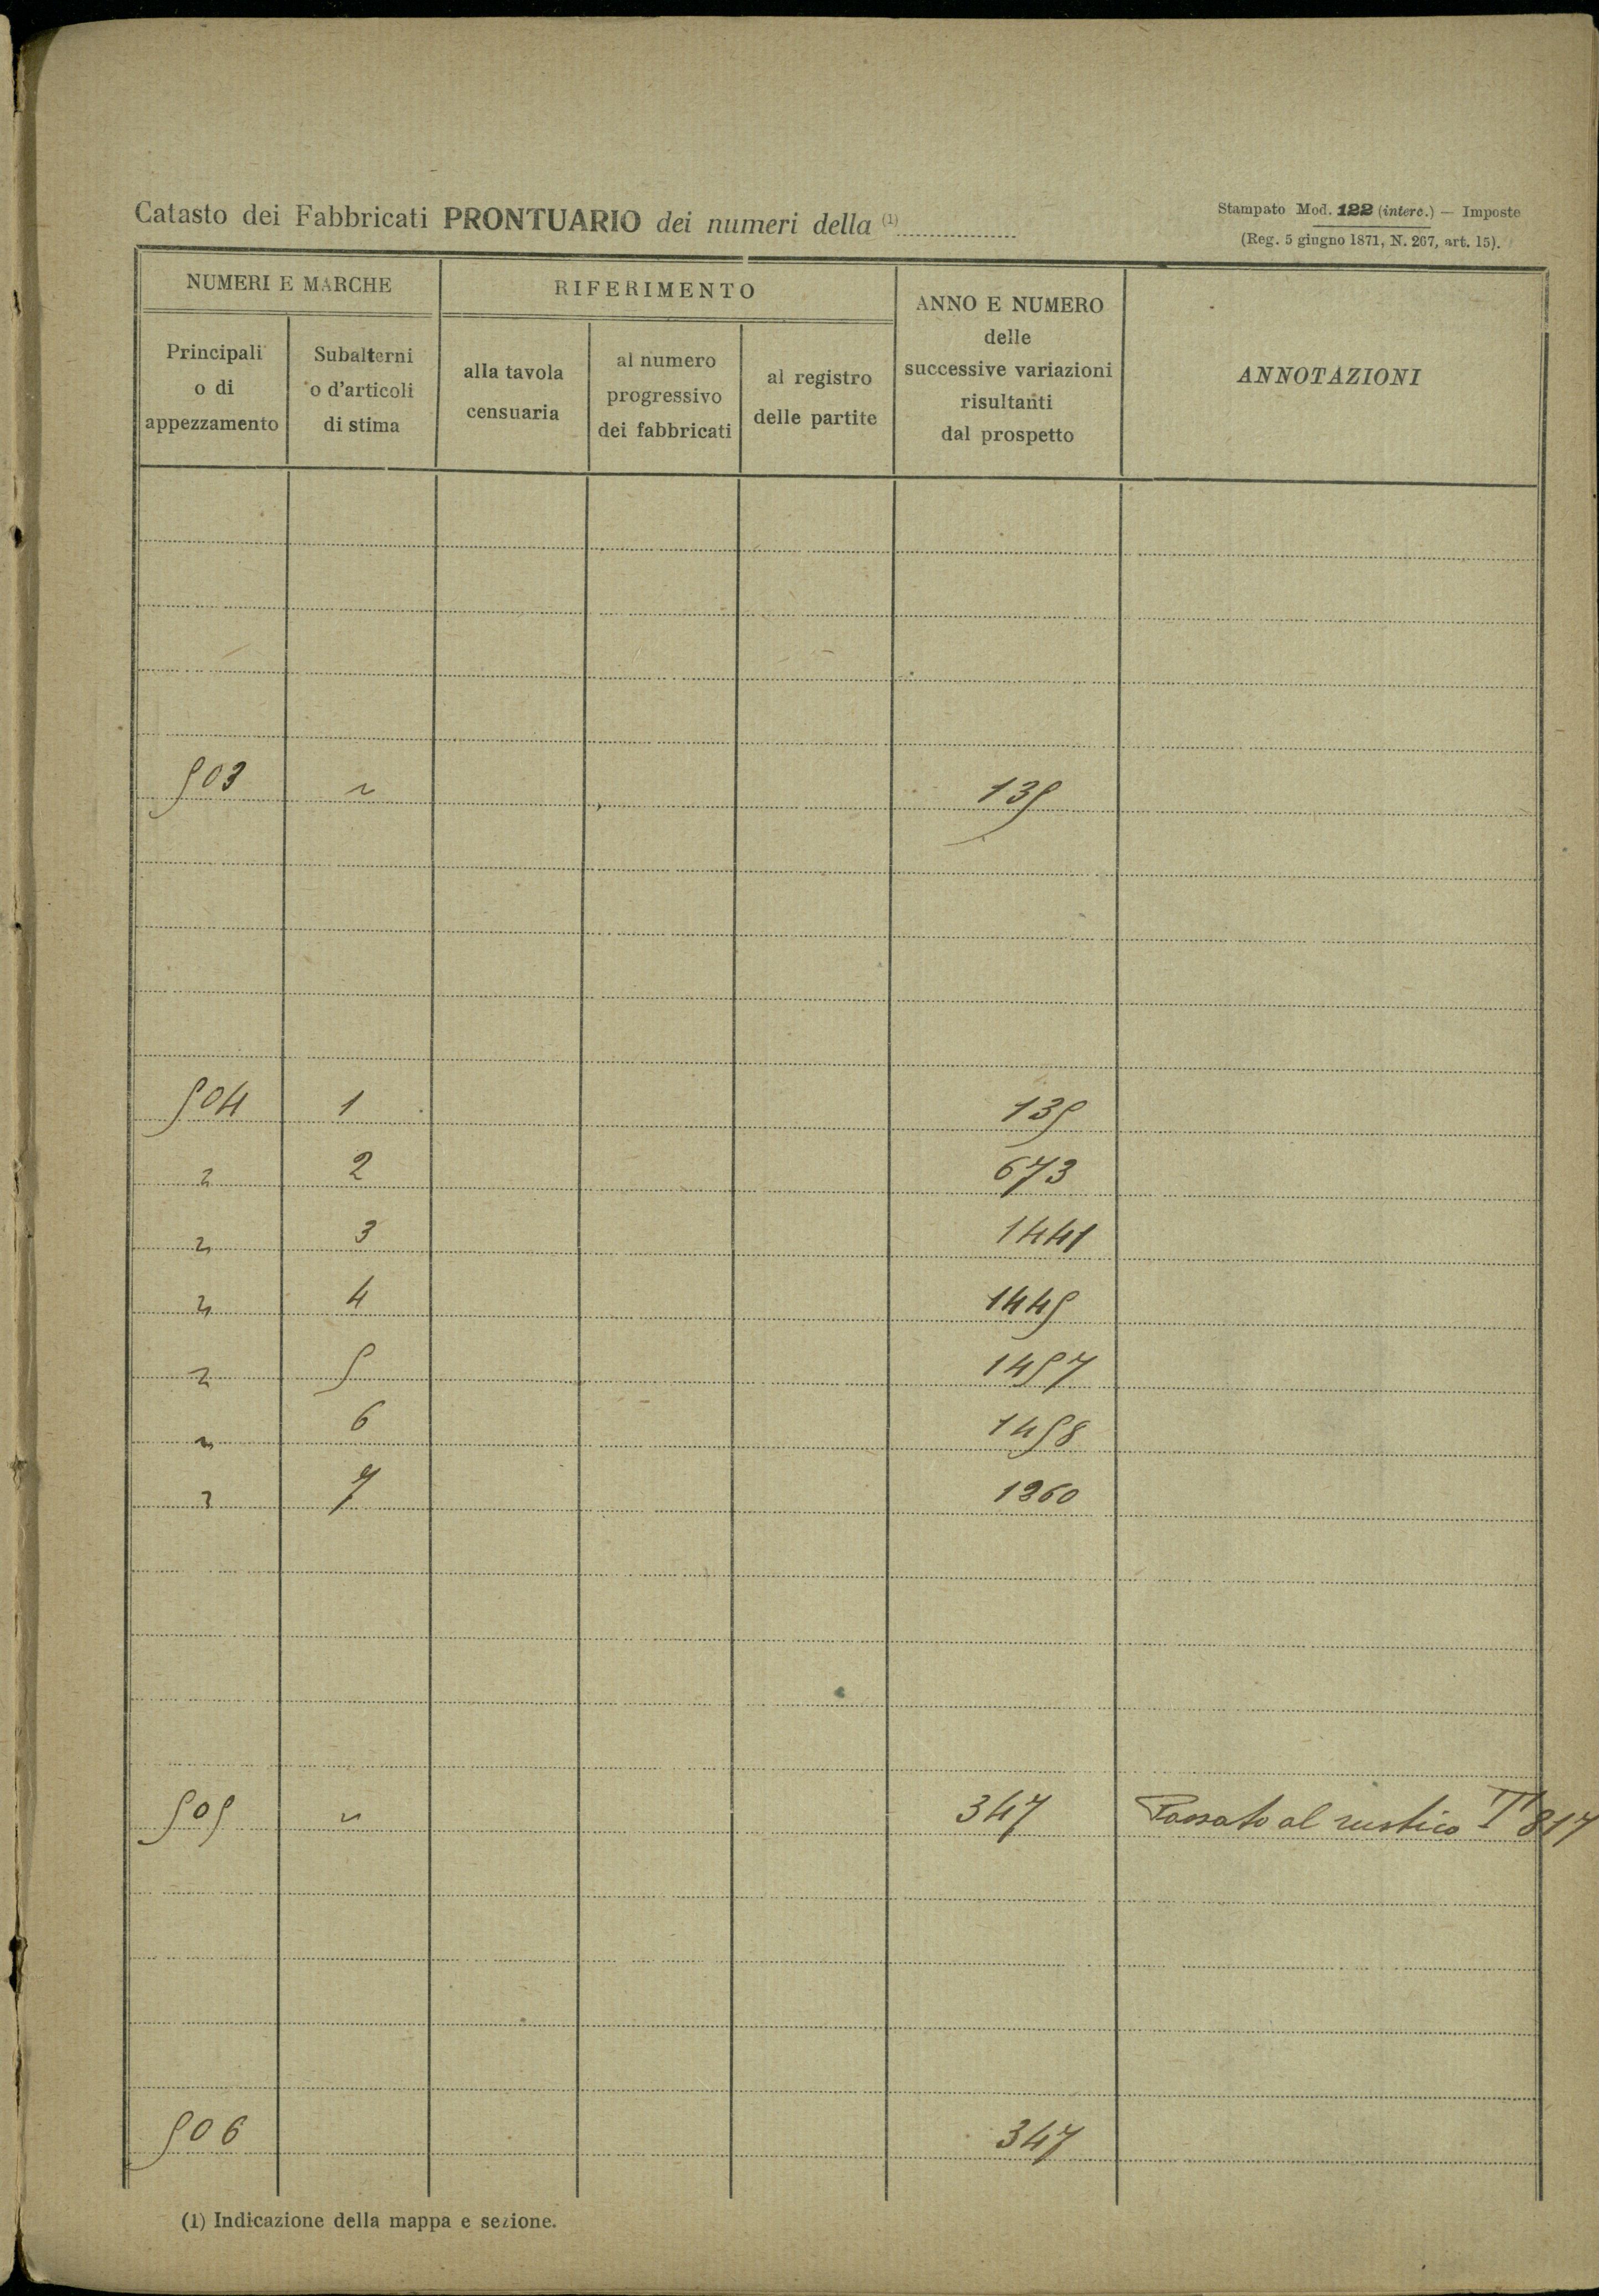 Catasto dei Fabbricati PRONTUARIO dei numeri della (1)
Stampato Mod. 122 (interc.) — Imposte
(Reg. 5 giugno 1871, N. 267, art. 15).
NUMERI E MARCHE
RIFERIMENTO
ANNO E NUMERO
delle
successive variazioni
risultanti
dal prospetto
ANNOTAZIONI
Principali
o di
appezzamento
Subalterni
o d'articoli
di stima
alla tavola
censuaria
al numero
progressivo
dei fabbricati
al registro
delle partite
503 ~ 135
504 1 135
" 2 673
" 3 1441
" 4 1445
" 5 1457
" 6 1458
" 7 1360
505 ~ 347 Passato al rustico T 817
506 347
(1) Indicazione della mappa e sezione.